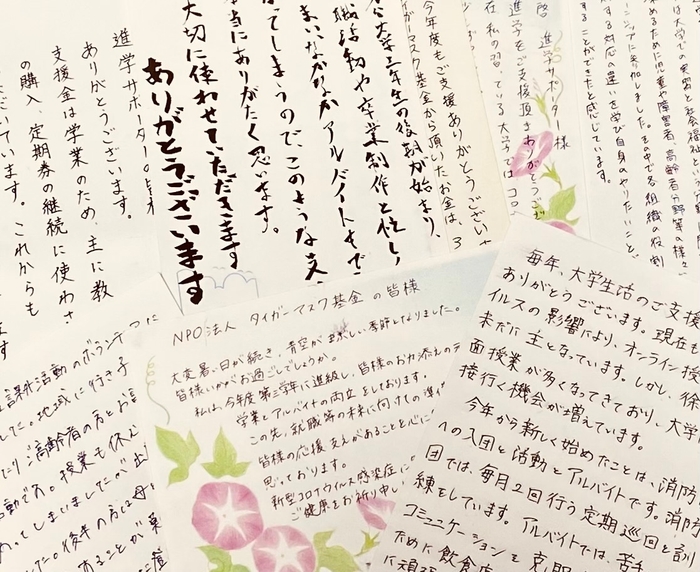 進学サポーターの皆様
ありがとうございます。
支援金は学業のため、主に教
の購入、定期券の継続に使わさ
います。これからも
大学三年生の後期が始まり、
職活動や卒業制作と忙し
まいなかなかアルバイトもで
ってしまうので、このような支
当にありがたく思います。
大切に使わせていただきます
ありがとうございます
今年度もご支援ありがとうございま
ガーマスク基金から頂いたお金は、3
啓 進学サポーター様
進学をご支援頂きありがとうござ
在私の習っている大学では コロ
は大学での実習と社会福祉
めるために児童や障害者、高齢者分野等の様々
に参加しました。その中で各組織の役割
する対応の違いを学び自身のやりたいこと、
することができたと感じています。
NPO法人 タイガーマスク基金 の皆様
大変暑い日が続き、青空が眩しい季節となりました。
皆様いかがお過ごしでしょうか。
私は、今年度第三学年に進級し、皆様のお力添えのテ
学業とアルバイトの両立をしております。
この先、就職等の未来に向けての準備
皆様の応援、支えがあることを心に
思っております。
新型コロナウイルス感染症に
ご健康をお祈り申し
毎年、大学生活のご支援
ありがとうございます。現在も
イルスの影響により、オンライン授
未だに主となっています。しかし、徐
面授業が多くなってきており、大学
接行く機会が増えています。
今年から新しく始めたことは、消防
への入団と活動とアルバイトです。消防
団では、毎月2回行う定期巡回と訓
練をしています。アルバイトでは、苦手
コミュニケーションを克服
ために飲食店
に頑張
課外活動のボランティ
した。地域に行き子
たりご高齢者の方とお話
活動です。授業も休
ってしまいましたが